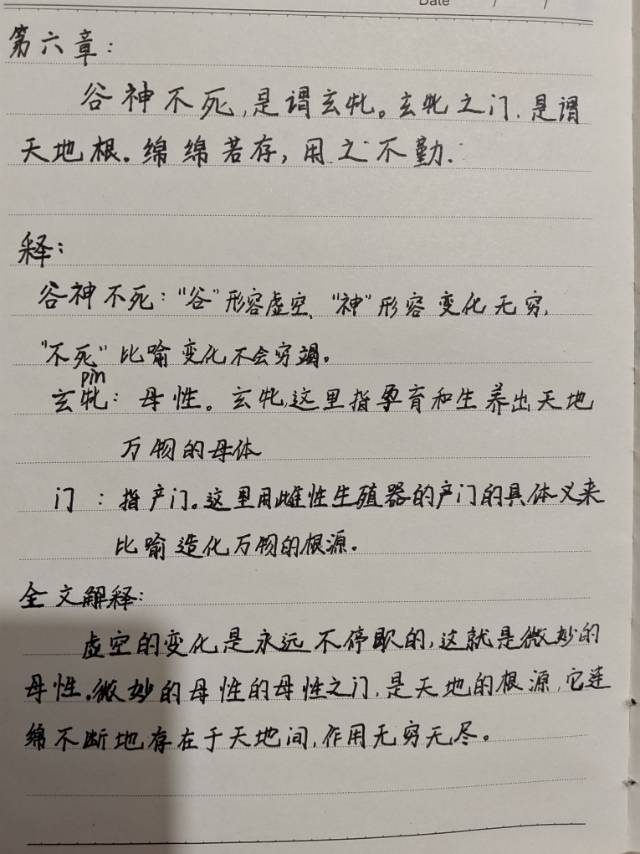 Date / /
第六章：
谷神不死，是谓玄牝。玄牝之门，是谓
天地根。绵绵若存，用之不勤.
释：
谷神不死："谷"形容虚空、"神"形容变化无穷，
"不死"比喻变化不会穷竭。
pìn
玄牝：母性。玄牝,这里指孕育和生养出天地
万物的母体
门：指产门。这里用雌性生殖器的产门的具体义来
比喻造化万物的根源.
全文解释:
虚空的变化是永远不停歇的,这就是微妙的
母性.微妙的母性的母性之门,是天地的根源,它连
绵不断地存在于天地间,作用无穷无尽。